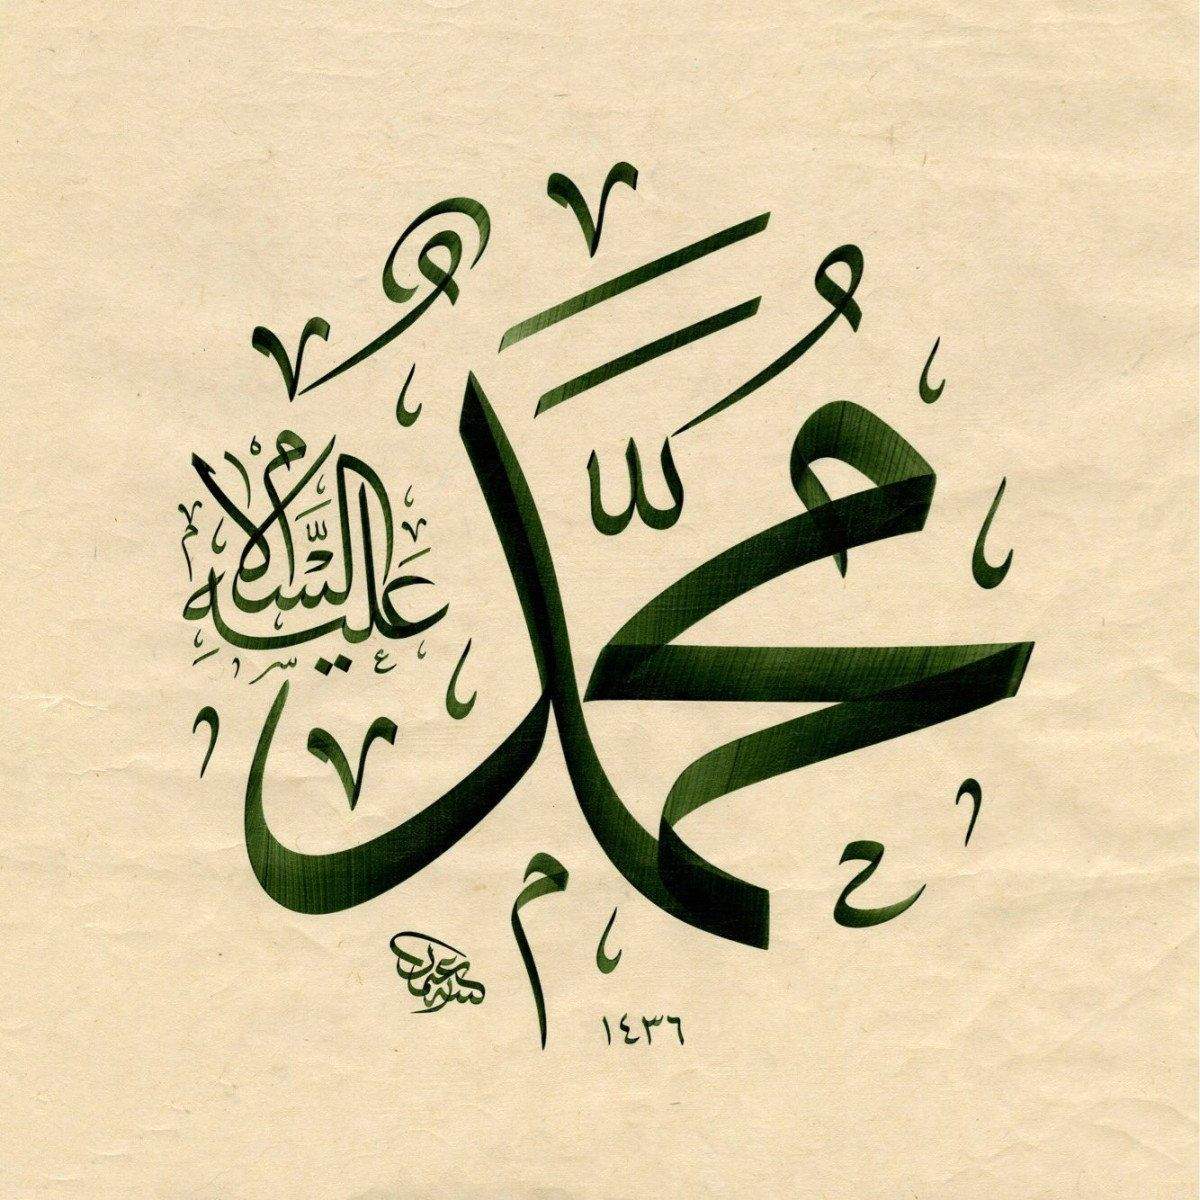 مُحَمَّدٌ
عَلَيْهِ السَّلَامُ
١٤٣٦